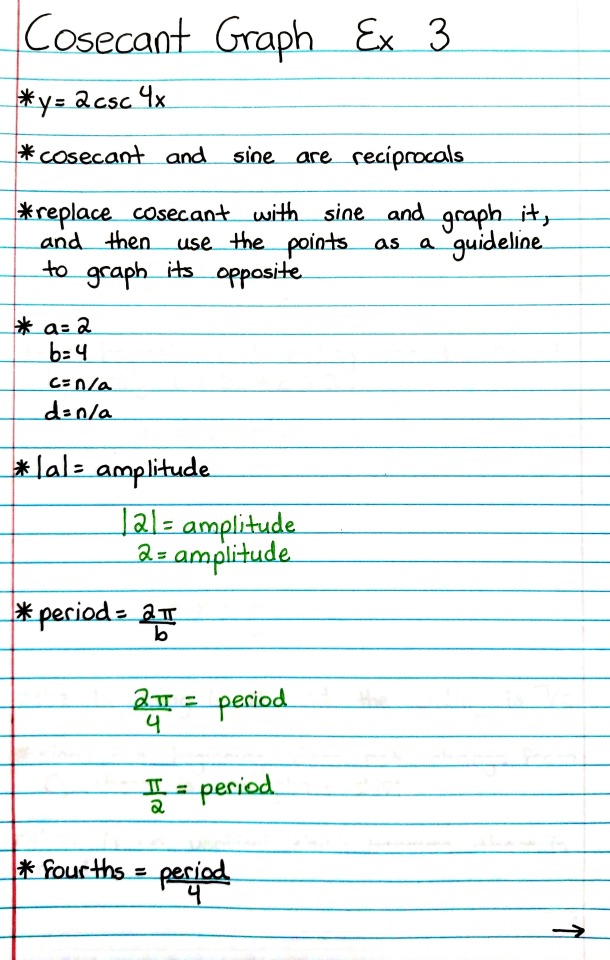 Cosecant Graph Ex 3
*y= 2csc 4x
*cosecant and sine are reciprocals
*replace cosecant with sine and graph it,
and then use the points as a guideline
to graph its opposite
* a=2
b=4
c=n/a
d=n/a
*|a|= amplitude
|2|= amplitude
2= amplitude
*period= 2π/b
2π/4 = period
π/2 = period
*fourths = period/4
→